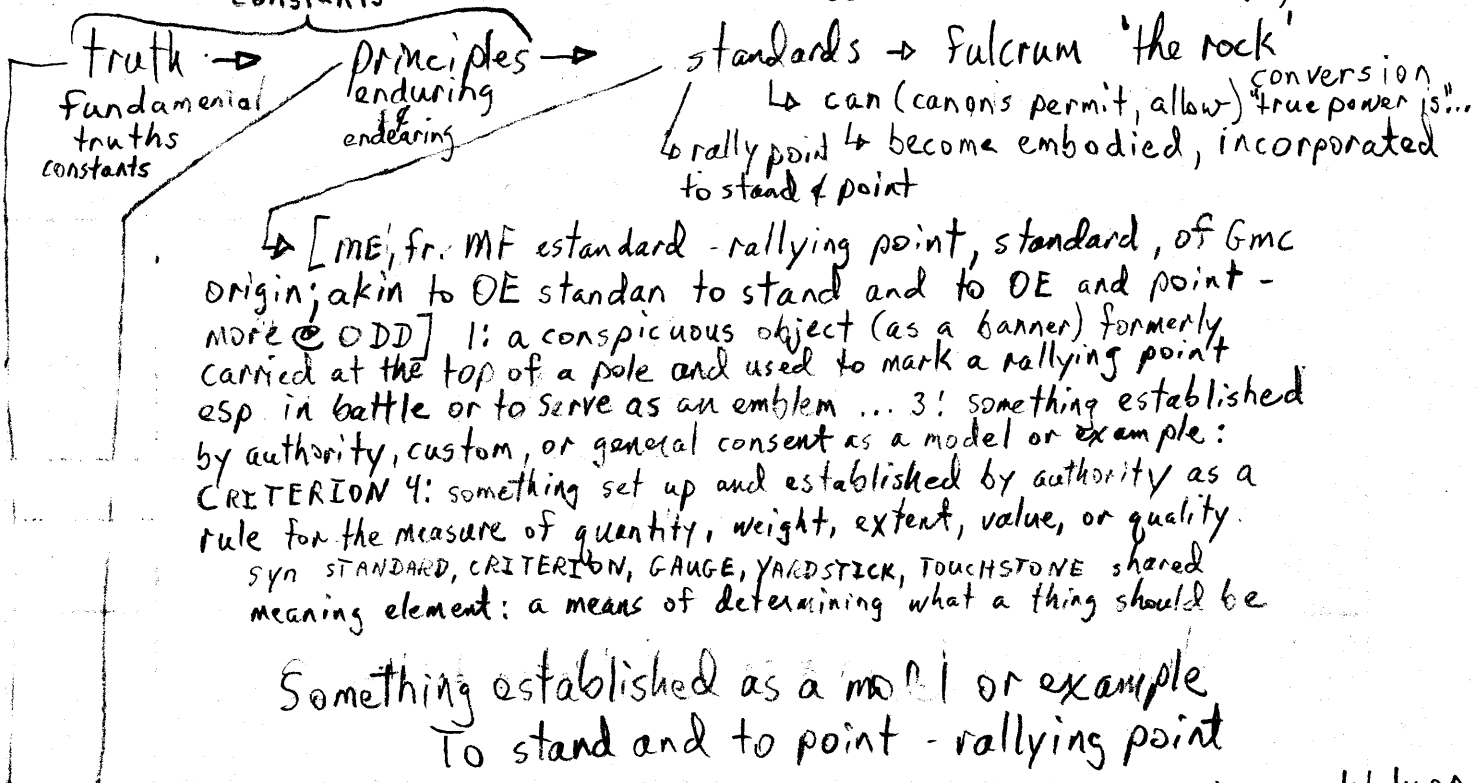 constants
truth → principles → standards → fulcrum 'the rock'
fundamenial
truths
constants
enduring
&
endearing
↳ can (canons permit, allow)
conversion
"true power is"...
↳ rally point ↳ become embodied, incorporated
to stand & point
↳ [ME, fr. MF estandard - rallying point, standard, of Gmc
origin; akin to OE standan to stand and to OE and point -
more @ ODD] 1: a conspicuous object (as a banner) formerly
carried at the top of a pole and used to mark a rallying point
esp in battle or to serve as an emblem ... 3: something established
by authority, custom, or general consent as a model or example:
CRITERION 4: something set up and established by authority as a
rule for the measure of quantity, weight, extent, value, or quality.
syn STANDARD, CRITERION, GAUGE, YARDSTICK, TOUCHSTONE shared
meaning element: a means of determining what a thing should be
Something established as a model or example
To stand and to point - rallying point